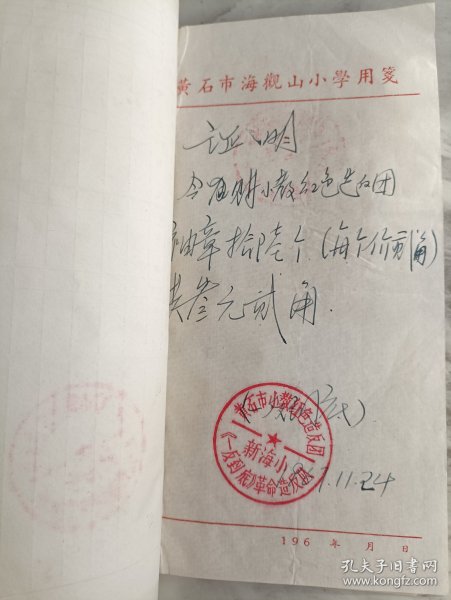 黄石市海觀山小學用箋
证明
今 小教红色造反团
油章拾陆个(每个价贰角)
共叁元贰角.
黄石市小教红色造反团
新海小
《一反到底》革命造反队
11.24
196 年 月 日
孔夫子旧书网
www.kongfz.com